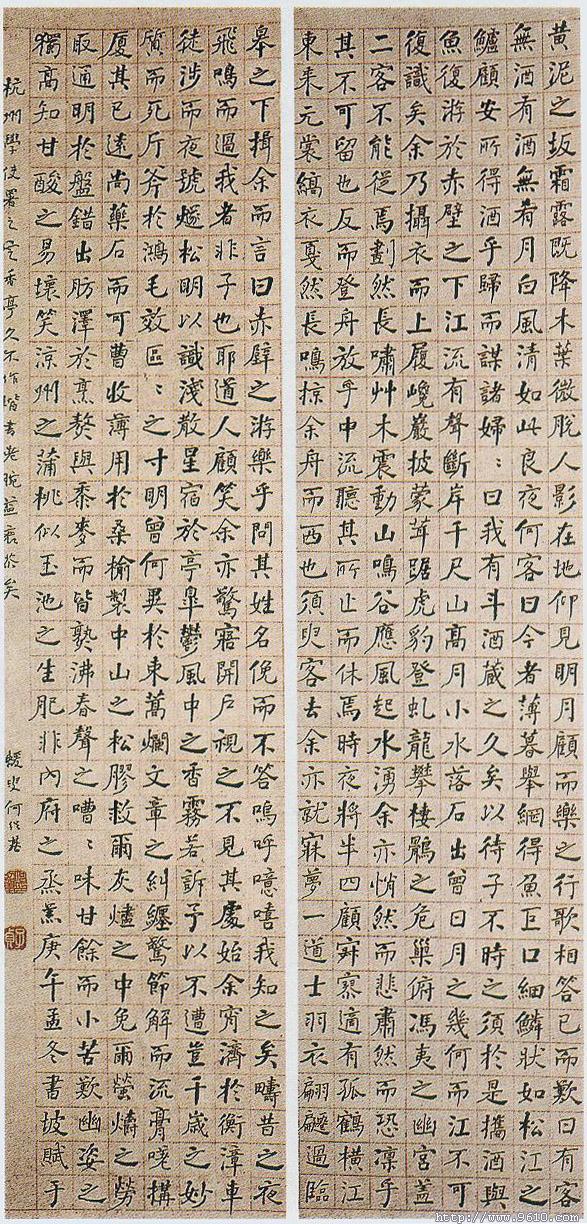 黄泥之坂霜露既降木葉微脱人影在地仰見明月顧而樂之行歌相答已而歎曰有客
無酒有酒無肴月白風清如此良夜何客曰今者薄暮舉網得魚巨口細鱗狀如松江之
鱸顧安所得酒乎歸而謀諸婦〻曰我有斗酒藏之久矣以待子不時之須於是攜酒與
魚復游於赤壁之下江流有聲斷岸千尺山高月小水落石出曾日月之幾何而江不可
復識矣余乃攝衣而上履巉巖披蒙茸踞虎豹登虬龍攀棲鶻之危巢俯馮夷之幽宮蓋
二客不能從焉劃然長嘯艸木震動山鳴谷應風起水湧余亦悄然而悲肅然而恐凜乎
其不可留也反而登舟放乎中流聽其所止而休焉時夜將半四顧寂寥適有孤鶴橫江
東來元裳縞衣戛然長鳴掠余舟而西也須臾客去余亦就寐夢一道士羽衣翩躚過臨
皋之下揖余而言曰赤壁之游樂乎問其姓名俛而不答嗚呼噫嘻我知之矣疇昔之夜
飛鳴而過我者非子也耶道人顧笑余亦驚寤開戶視之不見其處始余宵濟於衡漳車
徒涉而夜號燧松明以識淺散星宿於亭皋鬱風中之香霧若訴予以不遭豈千歲之妙
質而死斤斧於鴻毛效區〻之寸明曾何異於束蒿爛文章之糾纏驚節解而流膏嗟構
厦其已遠尚藥石而可曹收薄用於桑榆製中山之松醪救爾灰燼之中免爾螢爝之勞
取通明於盤錯出肪澤於烹熬與黍麥而皆熟沸舂聲之嘈〻味甘餘而小苦歎幽姿之
獨高知甘酸之易壞笑涼州之蒲桃似玉池之生肥非內府之烝羔庚午孟冬書坡賦于
杭州學使署之定香亭久不作楷書老腕益矣
蝯叟何紹基
http://www.9610.com